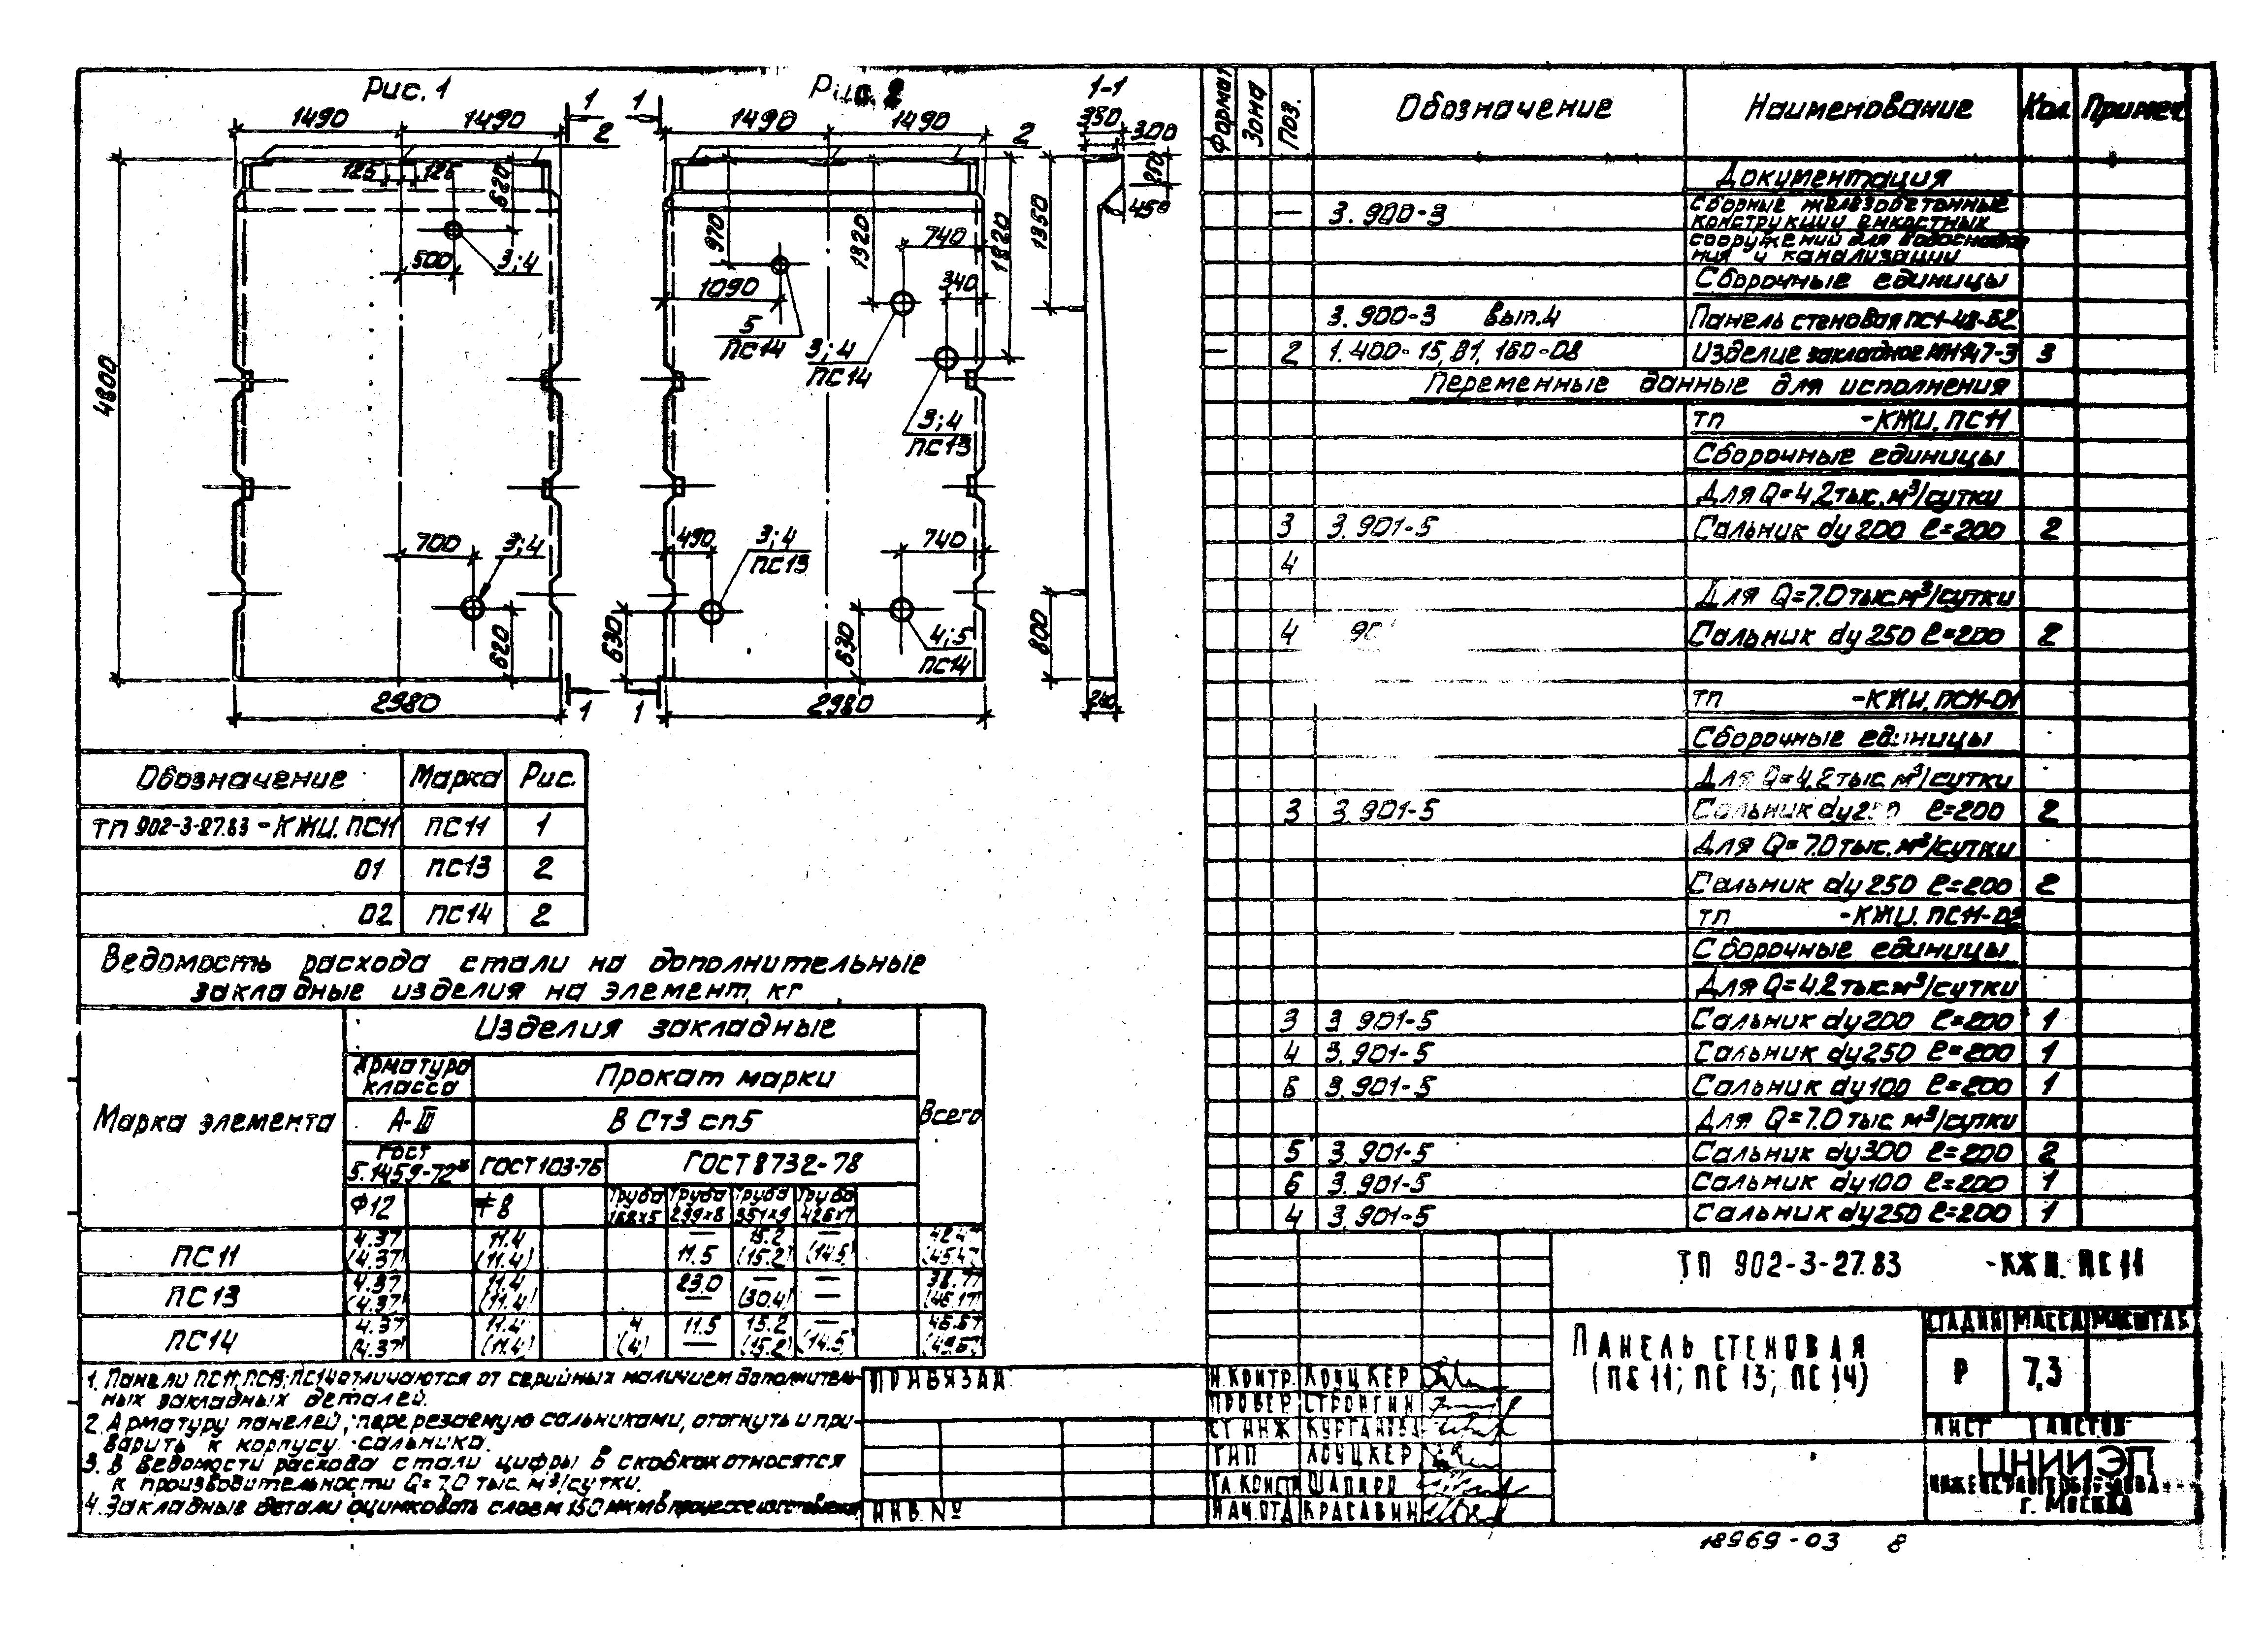 Рис. 1
1490 1490
1
2
125 125
620
500
3;4
4800
700
3;4
620
2980
1
Рис. 2
1
1490 1490
2
970
1320
740
1820
1090
340
5
ПС14
3;4
ПС14
3;4
ПС13
490
3;4
ПС13
740
630
630
4;5
ПС14
2980
1
1-1
350
300
450
1350
800
240
Обозначение Марка Рис.
ТП 902-3-27.83-КЖИ.ПС11 ПС11 1
01 ПС13 2
02 ПС14 2
Ведомость расхода стали на дополнительные
закладные изделия на элемент, кг
Марка элемента
Изделия закладные
Всего
Арматура
класса
Прокат марки
А-III
В Ст3 сп5
ГОСТ
5.1459-72*
ГОСТ 103-76
ГОСТ 8732-78
Ф12
≠8
Труба Труба Труба Труба
168х5 299х8 351х9 426х7
ПС11
4.37 11.4 — 15.2
(4.37) (11.4) 11.5 (15.2) (14.5)
ПС13
4.37 11.4 23.0 — —
(4.37) (11.4) — (30.4) —
ПС14
4.37 11.4 4 11.5 15.2 —
(4.37) (11.4) (4) — (15.2) (14.5)
1. Панели ПС11, ПС13, ПС14 отличаются от серийных наличием дополнитель-
ных закладных деталей.
2. Арматуру панелей, перерезаемую сальниками, отогнуть и при-
варить к корпусу сальника.
3. В ведомости расхода стали цифры в скобках относятся
к производительности Q=7.0 тыс. м³/сутки.
4. Закладные детали оцинковать слоем 150 мкм в процессе изготовления
Привязан
Инв. №
Формат Зона Поз. Обозначение Наименование Кол. Примеч.
Документация
— 3.900-3 Сборные железобетонные
конструкции емкостных
сооружений для водоснабже
ния и канализации
Сборочные единицы
3.900-3 вып.4 Панель стеновая ПС1-48-Б2
— 2 1.400-15, В1, 160-08 Изделие закладное МН147-3 3
Переменные данные для исполнения
ТП -КЖИ.ПС11
Сборочные единицы
Для Q=4,2 тыс. м³/сутки
3 3.901-5 Сальник dy 200 ℓ=200 2
4
Для Q=7.0 тыс. м³/сутки
4 90 Сальник dy 250 ℓ=200 2
ТП -КЖИ.ПС11-01
Сборочные единицы
Для Q=4.2 тыс. м³/сутки
3 3.901-5 Сальник dy ℓ=200 2
Для Q=7.0 тыс. м³/сутки
Сальник dy 250 ℓ=200 2
ТП -КЖИ.ПС11-02
Сборочные единицы
Для Q=4.2 тыс. м³/сутки
3 3.901-5 Сальник dy 200 ℓ=200 1
4 3.901-5 Сальник dy 250 ℓ=200 1
6 3.901-5 Сальник dy 100 ℓ=200 1
Для Q=7.0 тыс м³/сутки
5 3.901-5 Сальник dy 300 ℓ=200 2
6 3.901-5 Сальник dy 100 ℓ=200 1
4 3.901-5 Сальник dy 250 ℓ=200 1
ТП 902-3-27.83 -КЖИ.ПС11
Панель стеновая
(ПС 11; ПС 13; ПС 14)
Стадия Масса Масштаб
Р 7,3
Лист Листов
Н.контр. Лоуцкер
Провер. Стронгин
Ст. инж Курганова
ГИП Лоуцкер
Гл. констр Шапиро
Нач. отд Красавин
ЦНИИЭП
инженерного оборудова
г. Москва
18969-03 8